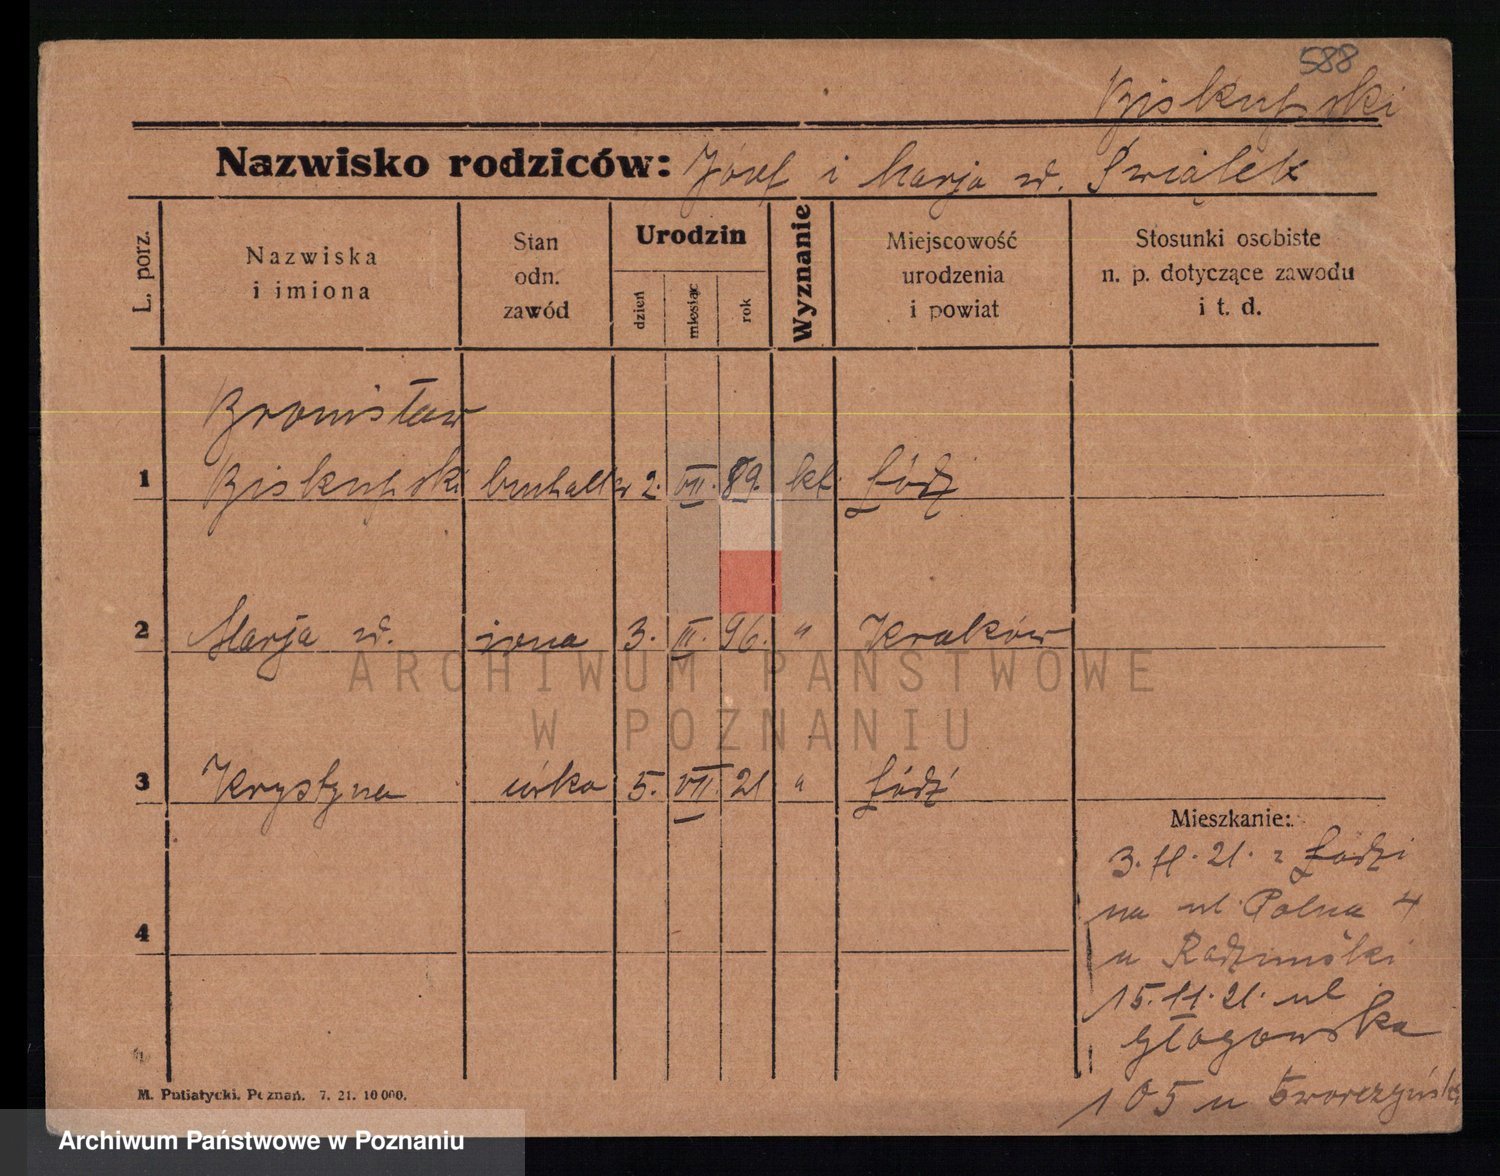 588
Biskupski
Nazwisko rodziców: Józef i Marja zd. Świątek
L. porz.
Nazwiska
i imiona
Stan
odn.
zawód
Urodzin
dzień
miesiąc
rok
Wyznanie
Miejscowość
urodzenia
i powiat
Stosunki osobiste
n. p. dotyczące zawodu
i t. d.
Bronisław
1 Biskupski buchalter 2. VII. 89. kt. Łódź
2 Marja zd. żona 3. III. 96. " Kraków
3 Krystyna córka 5. VII. 21 " Łódź
4
Mieszkanie:
3.11.21. z Łodzi
na ul. Polna 4
u Radzimski
15.11.21. ul
Głogowska
105 u
M. Putiatycki. Poznań. 7. 21. 10 000.
ARCHIWUM PAŃSTWOWE
W POZNANIU
Archiwum Państwowe w Poznaniu